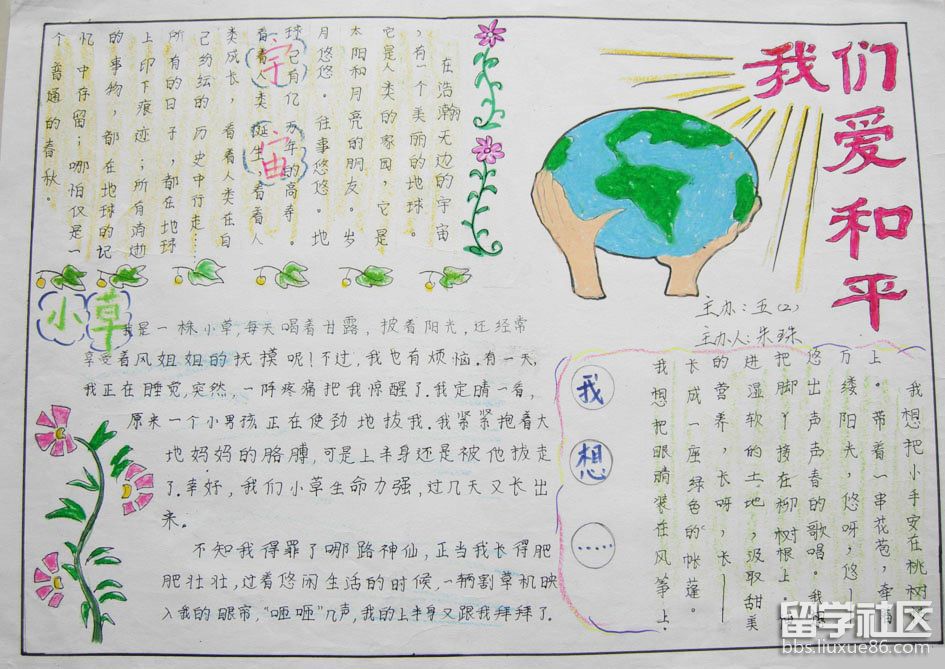 我们爱和平
主办:五(2)
主办人:朱珠
宇宙
在浩瀚无边的宇宙
,有一个美丽的地球。
它是人类的家园,它是
太阳和月亮的朋友。岁
月悠悠。往事悠悠。地
球已有亿万年的高寿。
看着人类诞生,看着人
类成长,看着人类在自
己纷纭的历史中行走……
所有的日子,都在地球
上印下痕迹;所有消逝
的事物,都在地球的记
忆中存留;哪怕仅是一
个普通的春秋。
小草
我是一株小草,每天喝着甘露,披着阳光,还经常
享受着风姐姐的抚摸呢!不过,我也有烦恼.有一天,
我正在睡觉,突然,一阵疼痛把我惊醒了.我定睛一看,
原来一个小男孩正在使劲地拔我.我紧紧抱着大
地妈妈的胳膊,可是上半身还是被他拔走
了.幸好,我们小草生命力强,过几天又长出
来.
不知我得罪了哪路神仙,正当我长得肥
肥壮壮,过着悠闲生活的时候,一辆割草机映
入我的眼帘,“咂咂”几声,我的上半身又跟我拜拜了.
我想……
我想把小手安在桃树
上。带着一串花苞,牵
万缕阳光,悠呀,悠——
悠出声声春的歌唱。我
把脚丫接在柳树根上
进湿软的土地,汲取甜美
的营养,长呀,长——
长成一座绿色的帐篷。
我想把眼睛装在风筝上.
留学社区
bbs.liuxue86.com